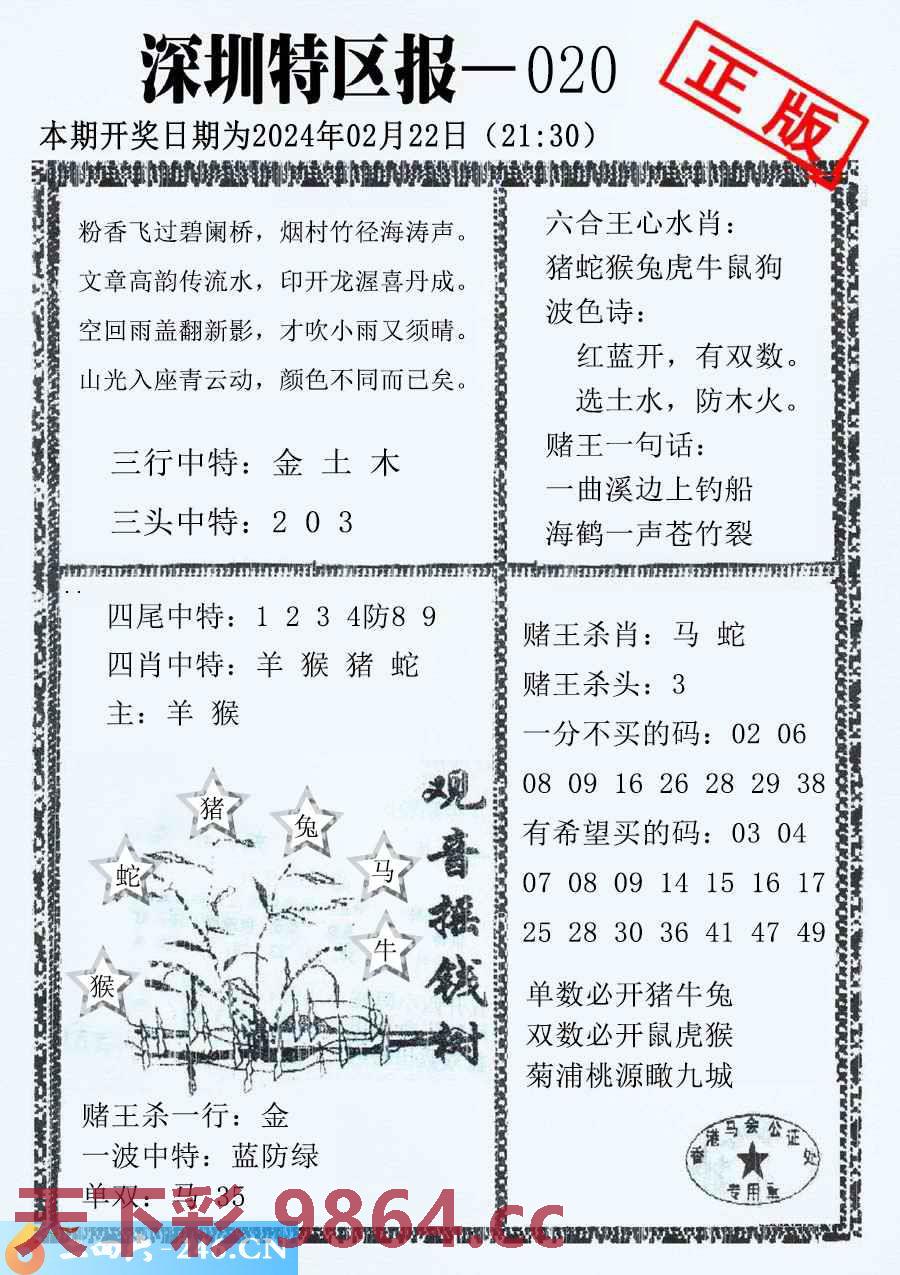 深圳特区报—020
正版
本期开奖日期为2024年02月22日（21:30）
粉香飞过碧阑桥，烟村竹径海涛声。
文章高韵传流水，印开龙渥喜丹成。
空回雨盖翻新影，才吹小雨又须晴。
山光入座青云动，颜色不同而已矣。
三行中特：金 土 木
三头中特：2 0 3
六合王心水肖：
猪蛇猴兔虎牛鼠狗
波色诗：
红蓝开，有双数。
选土水，防木火。
赌王一句话：
一曲溪边上钓船
海鹤一声苍竹裂
四尾中特：1 2 3 4防8 9
四肖中特：羊 猴 猪 蛇
主：羊 猴
猪
兔
蛇
马
牛
猴
观音摇钱树
赌王杀一行：金
一波中特：蓝防绿
单双：马 35
赌王杀肖：马 蛇
赌王杀头：3
一分不买的码：02 06
08 09 16 26 28 29 38
有希望买的码：03 04
07 08 09 14 15 16 17
25 28 30 36 41 47 49
单数必开猪牛兔
双数必开鼠虎猴
菊浦桃源瞰九城
香港马会公证处
专用章
天下彩 9864.cc
-246.CN